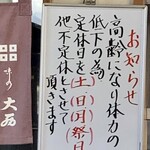 お知らせ
高齢になり体力の
低下の為
定休日を土日月祭日
他不定休とさせて
頂きます
味の
大西